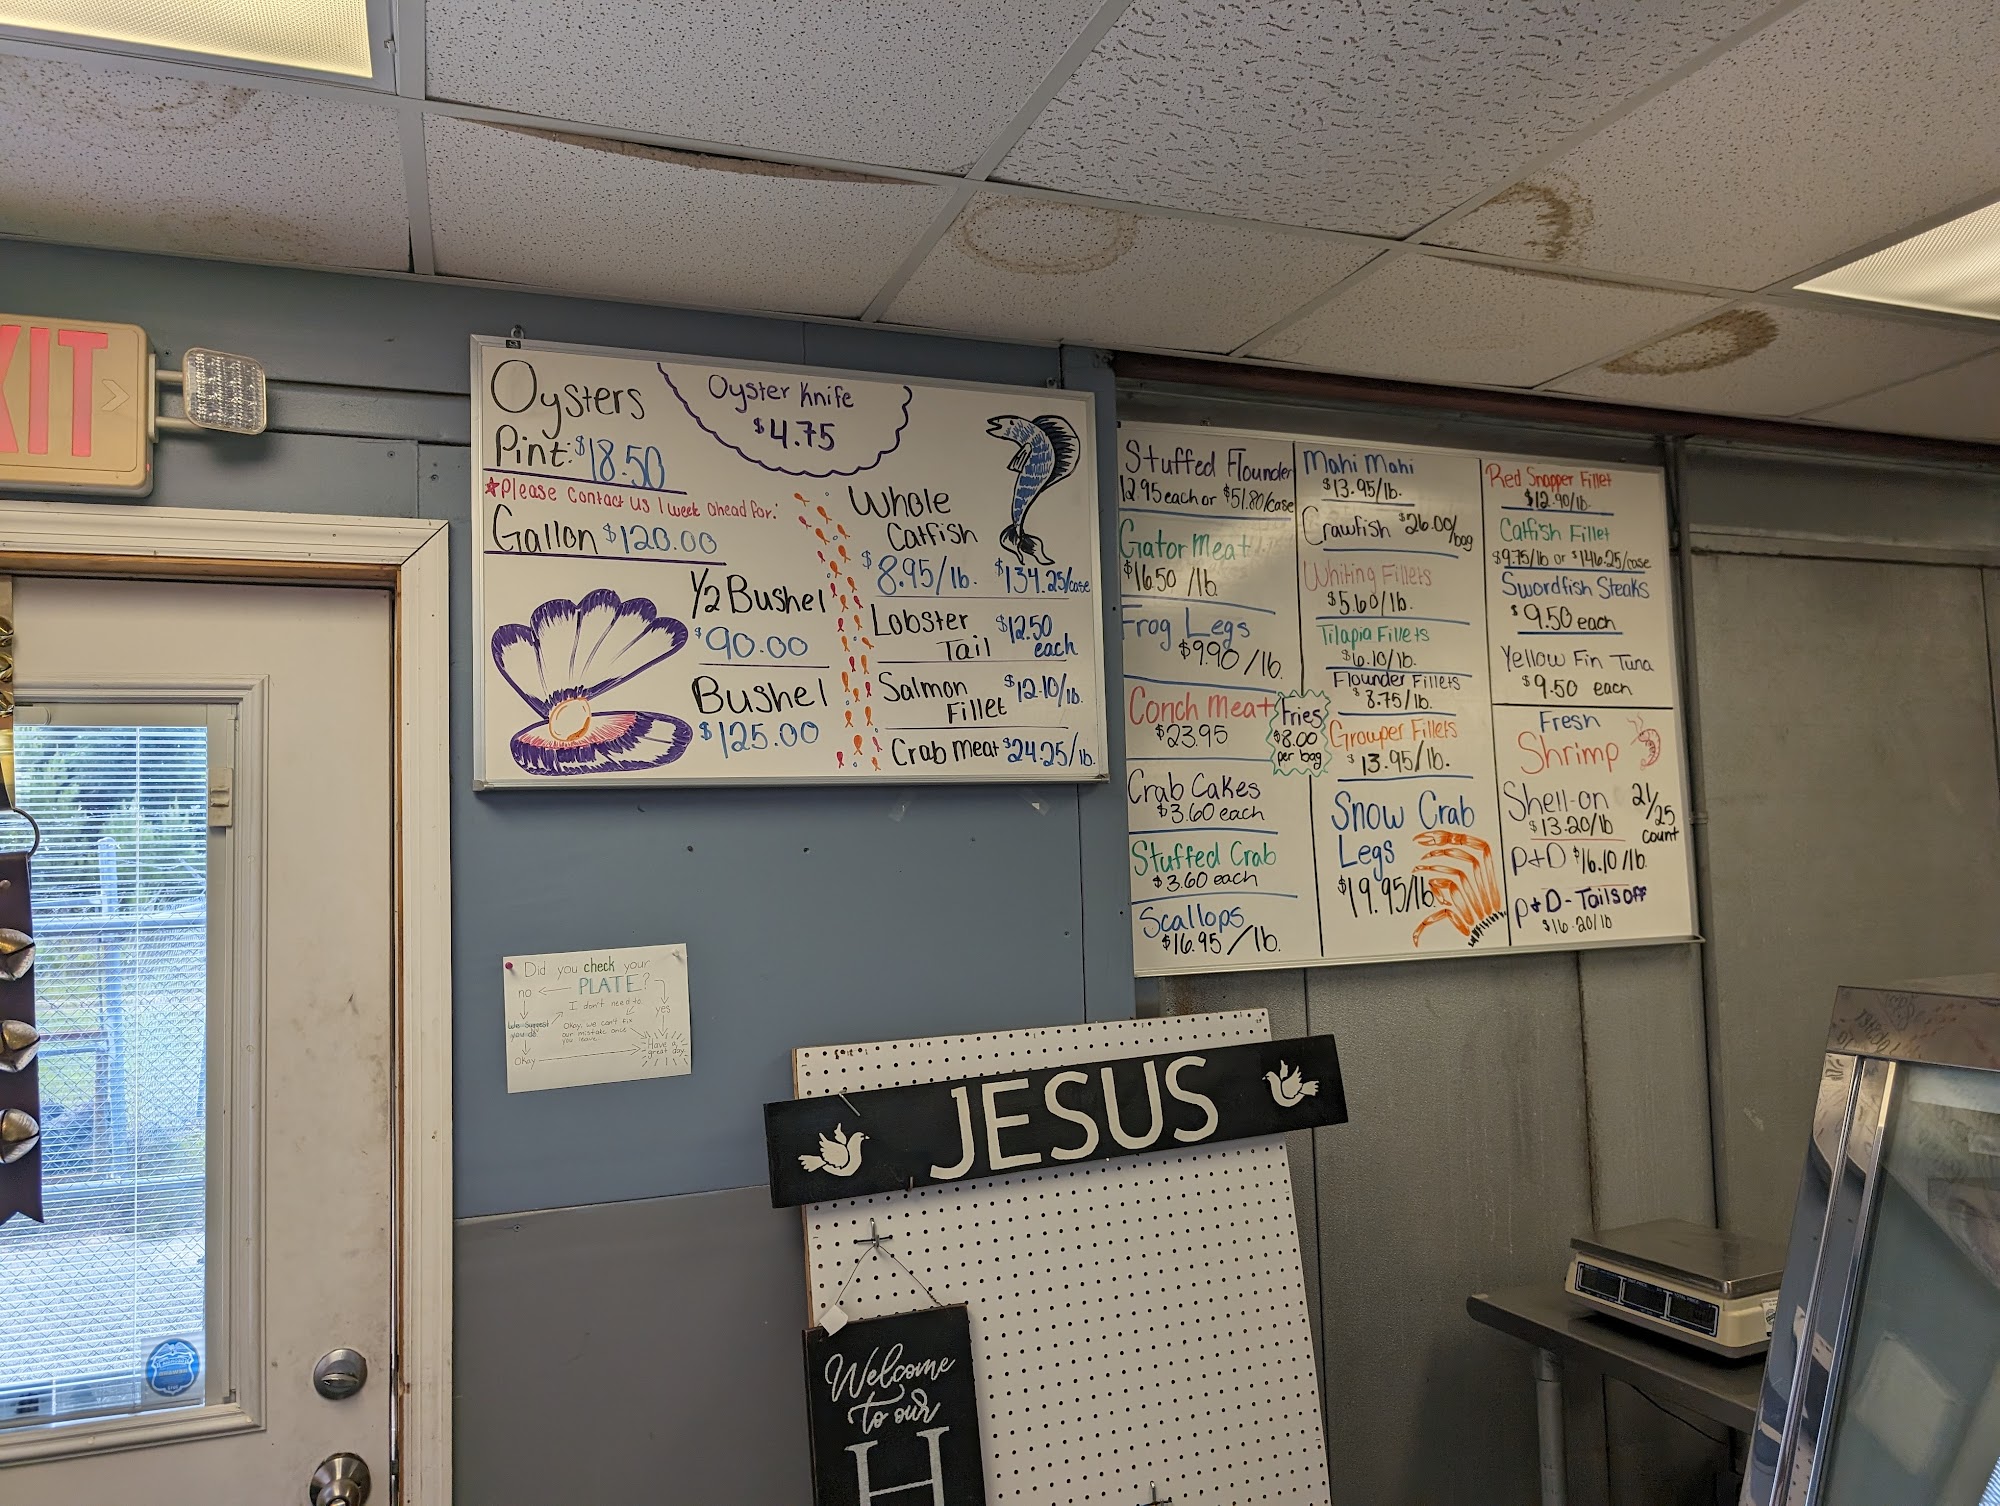 XIT
Oysters
Pint: $18.50
*Please Contact us 1 week ahead for:
Gallon $120.00
1/2 Bushel
$90.00
Bushel
$125.00
Oyster Knife
$4.75
Whole
Catfish
$8.95/lb. $134.25/case
Lobster
Tail
$12.50
each
Salmon
Fillet
$12.10/lb.
Crab Meat $24.25/lb.
Stuffed Flounder
12.95 each or $51.80/case
Gator Meat
$16.50 /lb.
Frog Legs
$9.90 /lb.
Conch Meat
$23.95
Fries
$8.00
per bag
Crab Cakes
$3.60 each
Stuffed Crab
$3.60 each
Scallops
$16.95 /lb.
Mahi Mahi
$13.95/lb.
Crawfish $26.00/bag
Whiting Fillets
$5.60/lb.
Tilapia Fillets
$6.10/lb.
Flounder Fillets
$8.75/lb.
Grouper Fillets
$13.95/lb.
Snow Crab
Legs
$19.95/lb
Red Snapper Fillet
$12.90/lb.
Catfish Fillet
$9.75/lb or $146.25/case
Swordfish Steaks
$9.50 each
Yellow Fin Tuna
$9.50 each
Fresh
Shrimp
Shell-on 21/25
$13.20/lb count
P+D $16.10/lb.
P+D-Tails off
$16.20/lb
Did you check your
PLATE?
no
yes
I don't need to.
We suggest
you do
Okay, we can't fix
our mistake once
you leave.
Okay
Have a
great day
JESUS
Welcome
to our
H